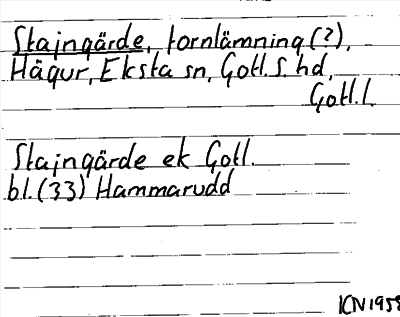 Stajngärde, fornlämning (?),
Hägur, Eksta sn, Gotl. S. hd,
Gotl. l.
Stajngärde ek Gotl.
bl. (33) Hammarudd
ICN 1958